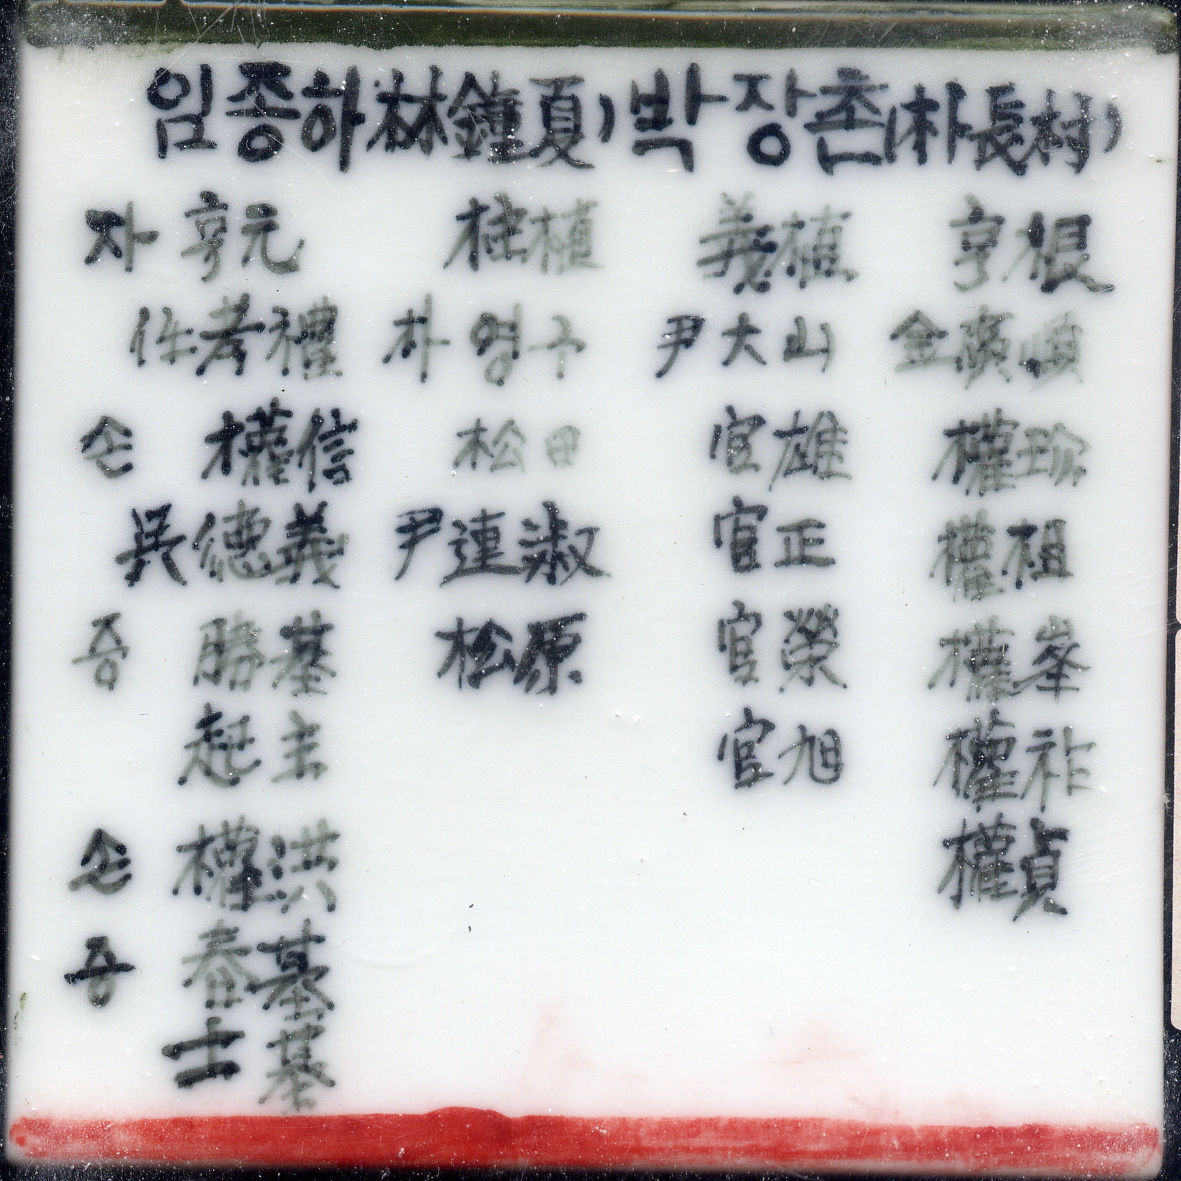 임종하(林鐘夏) 박장촌(朴長村)
자 亨元 桂植 義植 亨根
任孝禮 朴영구 尹大山 金廣順
손 權信 松田 官雄 權珍
吳德義 尹連淑 官正 權祖
증 勝基 松原 官榮 權峯
起主 官旭 權祚
손 權洪 權貞
증 春基
士基